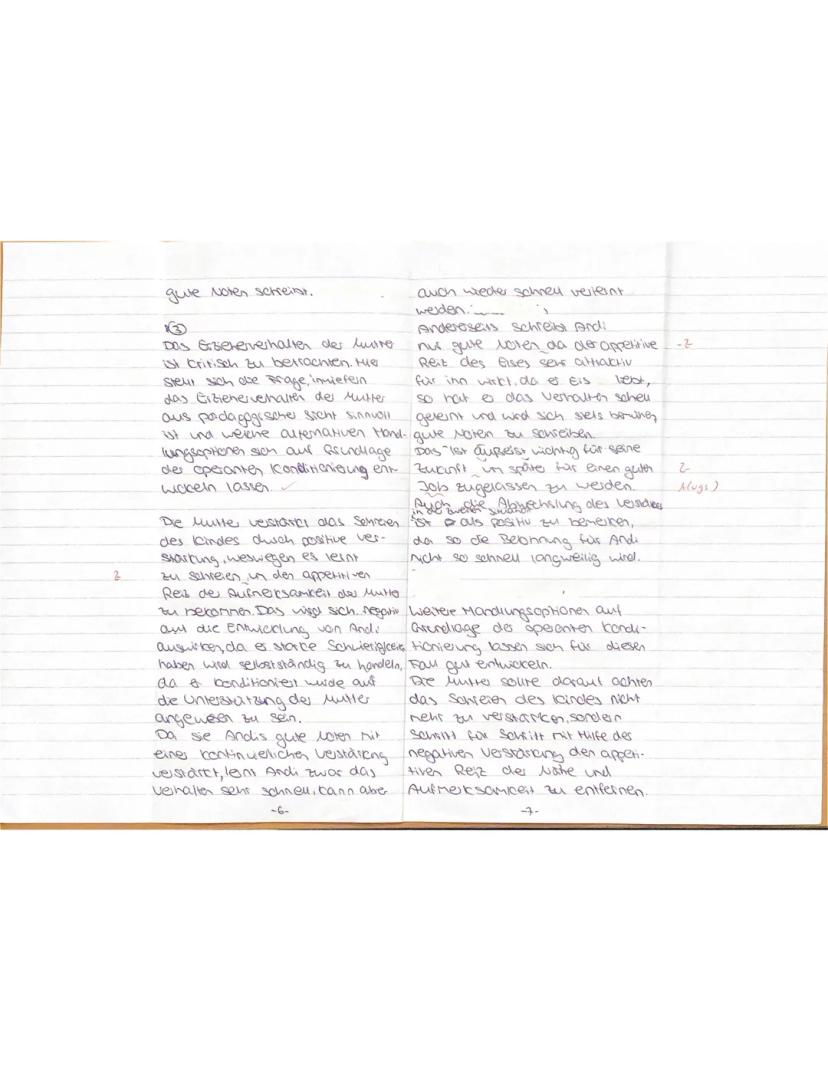 gute Noten schreibt.
3
Das Erzieherverhalten der Mutter
ist kritisch zu betrachten. Hier
stellt sich die Frage, inwiefern
das Erzieherverhalten der Mutter
aus pädagogischer Sicht sinnvoll
ist und welche alternativen Hand-
lungsoptionen sich auf Grundlage
der operanten Konditionierung ent-
wickeln lassen.
Die Mutter verstärkt das Schreien
des Kindes durch positive Ver-
stärkung, weswegen es lernt
zu schreien, um den appetitiven
2
Reiz der Aufmerksamkeit der Mutter
zu bekommen. Das wird sich negativ
auf die Entwicklung von Andi
auswirken, da er starke Schwierigkeiten
haben wird selbstständig zu handeln,
da er konditioniert wurde auf
die Unterstützung der Mutter
angewiesen zu sein.
Da sie Andis gute Noten mit
einer kontinuierlichen Verstärkung
verstärkt, lernt Andi zwar das
Verhalten sehr schnell, kann aber
-6-
auch wieder schnell verlernt
werden.
Andererseits schreibt Andi
nur gute Noten, da der appetitive -Z
Reiz des Eises sehr attraktiv
für ihn wirkt, da er Eis liebt,
so hat er das Verhalten schnell
gelernt und wird sich stets bemühen
gute Noten zu schreiben.
Das ist äußerst wichtig für seine
Zukunft, um später für einen guten Z
Job zugelassen zu werden. A(ugs.)
Auch die Abwechslung des Verstärkers
in der zweiten Situation
ist als positiv zu bemerken,
da so die Belohnung für Andi
nicht so schnell langweilig wird.
Weitere Handlungsoptionen auf
Grundlage der operanten Kondi-
tionierung lassen sich für diesen
Fall gut entwickeln.
Die Mutter sollte darauf achten
das Schreien des Kindes nicht
mehr zu verstärken, sondern
Schritt für Schritt mit Hilfe der
negativen Verstärkung den appeti-
tiven Reiz der Nähe und
Aufmerksamkeit zu entfernen.
-7-